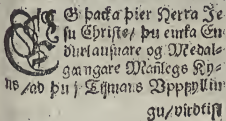 EG þacka þier Herra Je
su Christe/ þu einka En
durlausnare og Medal-
gangare Mañlegs Ky-
ns/ad þu i Tijmans Upppyllin
gu/virdtist